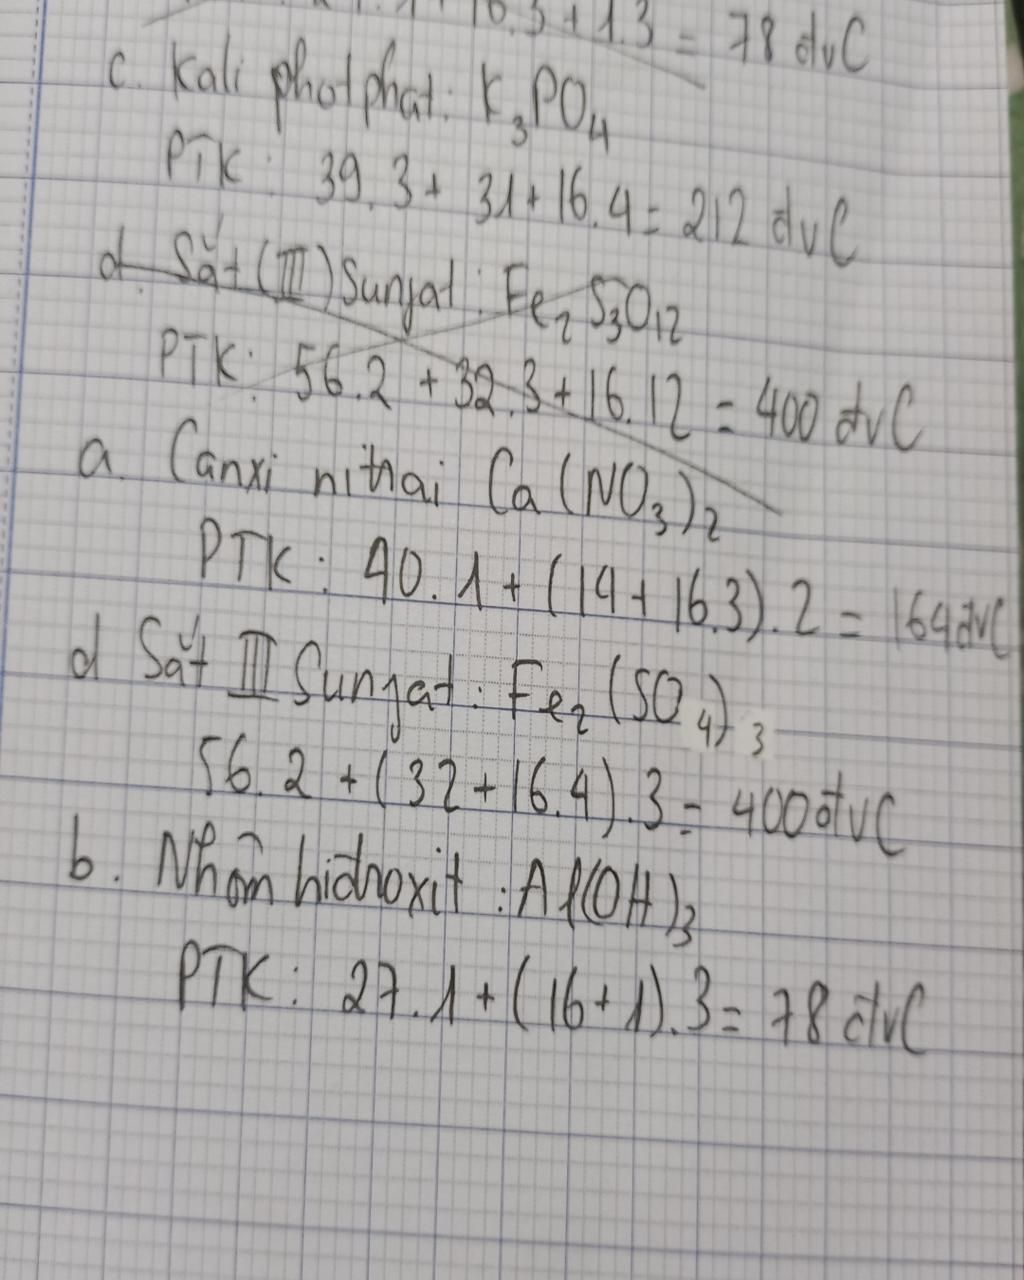 .3 + 1.3 = 78 đvC
c. Kali photphat: K₃PO₄
PTK: 39.3 + 31 + 16.4 = 212 đvC
d. Sắt (III) Sunfat: Fe₂S₃O₁₂
PTK: 56.2 + 32.3 + 16.12 = 400 đvC
a. Canxi nitrat Ca(NO₃)₂
PTK: 40.1 + (14 + 16.3).2 = 164 đvC
d Sắt III Sunfat: Fe₂(SO₄)₃
56.2 + (32 + 16.4).3 = 400 đvC
b. Nhôm hidroxit: Al(OH)₃
PTK: 27.1 + (16 + 1).3 = 78 đvC